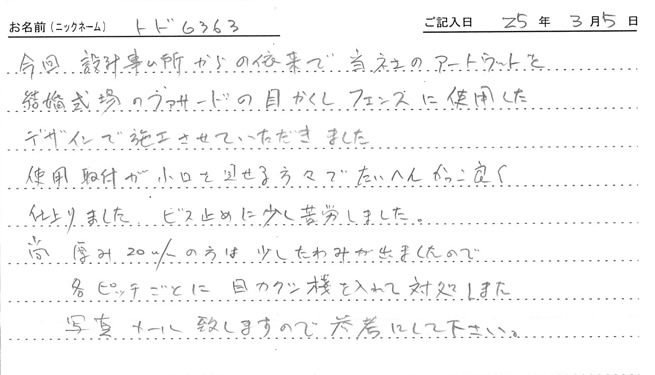 お名前(ニックネーム) トド6363 ご記入日 25年 3月5日
今回 設計事ム所からの依来で 当社のアートウットを
結婚式場のファサードの目かくしフェンスに使用した
デザインで施工させていただきました
使用取付が小口を見せる方々でたいへんかっこ良く
仕上りました ビス止めに少し苦労しました。
尚 厚み20m/mの方は少したわみが出ましたので
各ピッチごとに目カクシ棧を入れて対処しました
写真メール致しますので参考にして下さい。